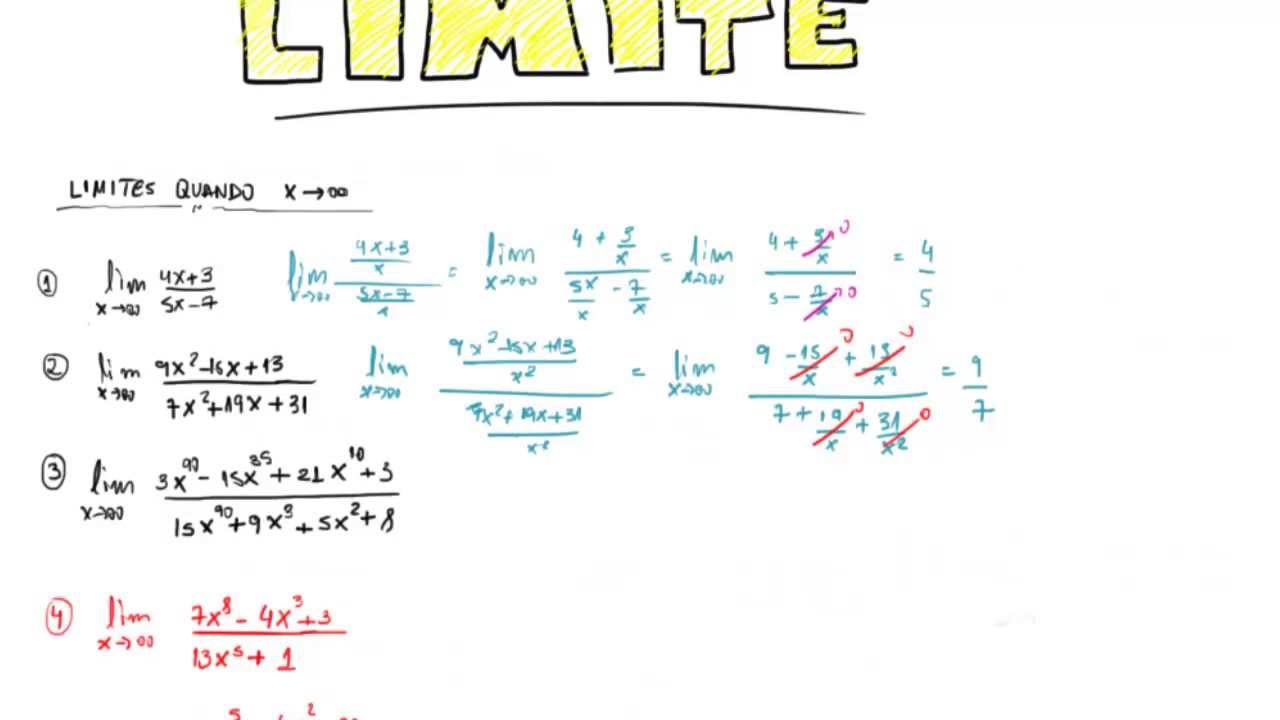 LIMITE
LIMITES QUANDO x→∞
① lim x→∞ (4x+3)/(5x-7) lim x→∞ ((4x+3)/x)/((5x-7)/x) = lim x→∞ (4 + 3/x)/(5x/x - 7/x) = lim x→∞ (4 + 3/x→0)/(5 - 7/x→0) = 4/5
② lim x→∞ (9x²-15x+13)/(7x²+19x+31) lim x→∞ ((9x²-15x+13)/x²)/((7x²+19x+31)/x²) = lim x→∞ (9 - 15/x→0 + 13/x²→0)/(7 + 19/x→0 + 31/x²→0) = 9/7
③ lim x→∞ (3x⁹⁰ - 15x³⁵ + 21x¹⁰ + 3)/(15x⁹⁰ + 9x³ + 5x² + 8)
④ lim x→∞ (7x⁸ - 4x³ + 3)/(13x⁵ + 1)